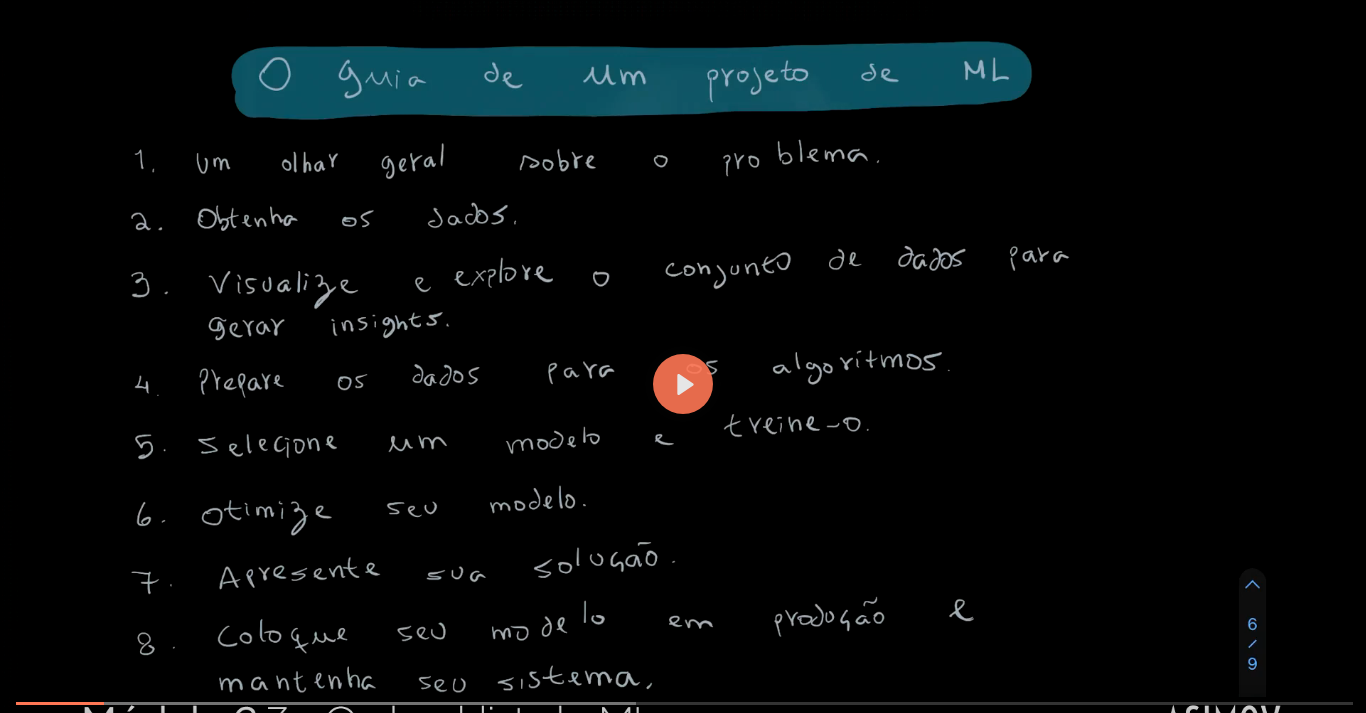 O guia de um projeto de ML
1. Um olhar geral sobre o problema.
2. Obtenha os dados.
3. Visualize e explore o conjunto de dados para
gerar insights.
4. Prepare os dados para os algoritmos.
5. Selecione um modelo e treine-o.
6. Otimize seu modelo.
7. Apresente sua solução.
8. Coloque seu modelo em produção e
mantenha seu sistema.
6
/
9